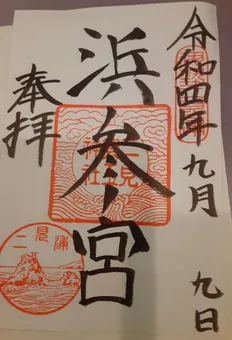 令和四年九月九日
浜参宮
奉拝
二見浦